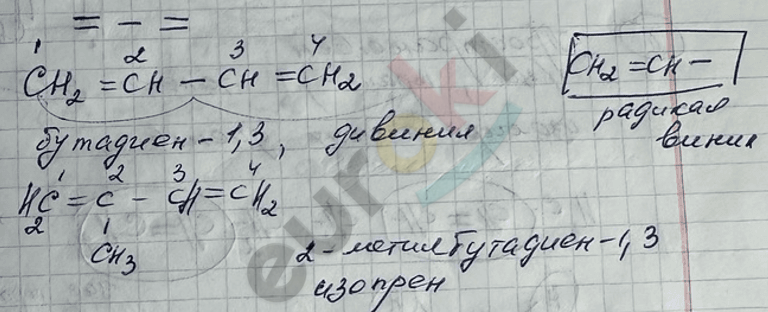 = - =
1 2 3 4
CH₂ = CH - CH = CH₂
CH₂ = CH -
радикал
винил
бутадиен-1,3, дивинил
1 2 3 4
H₂C = C - CH = CH₂
CH₃
2-метилбутадиен-1,3
изопрен
euroki